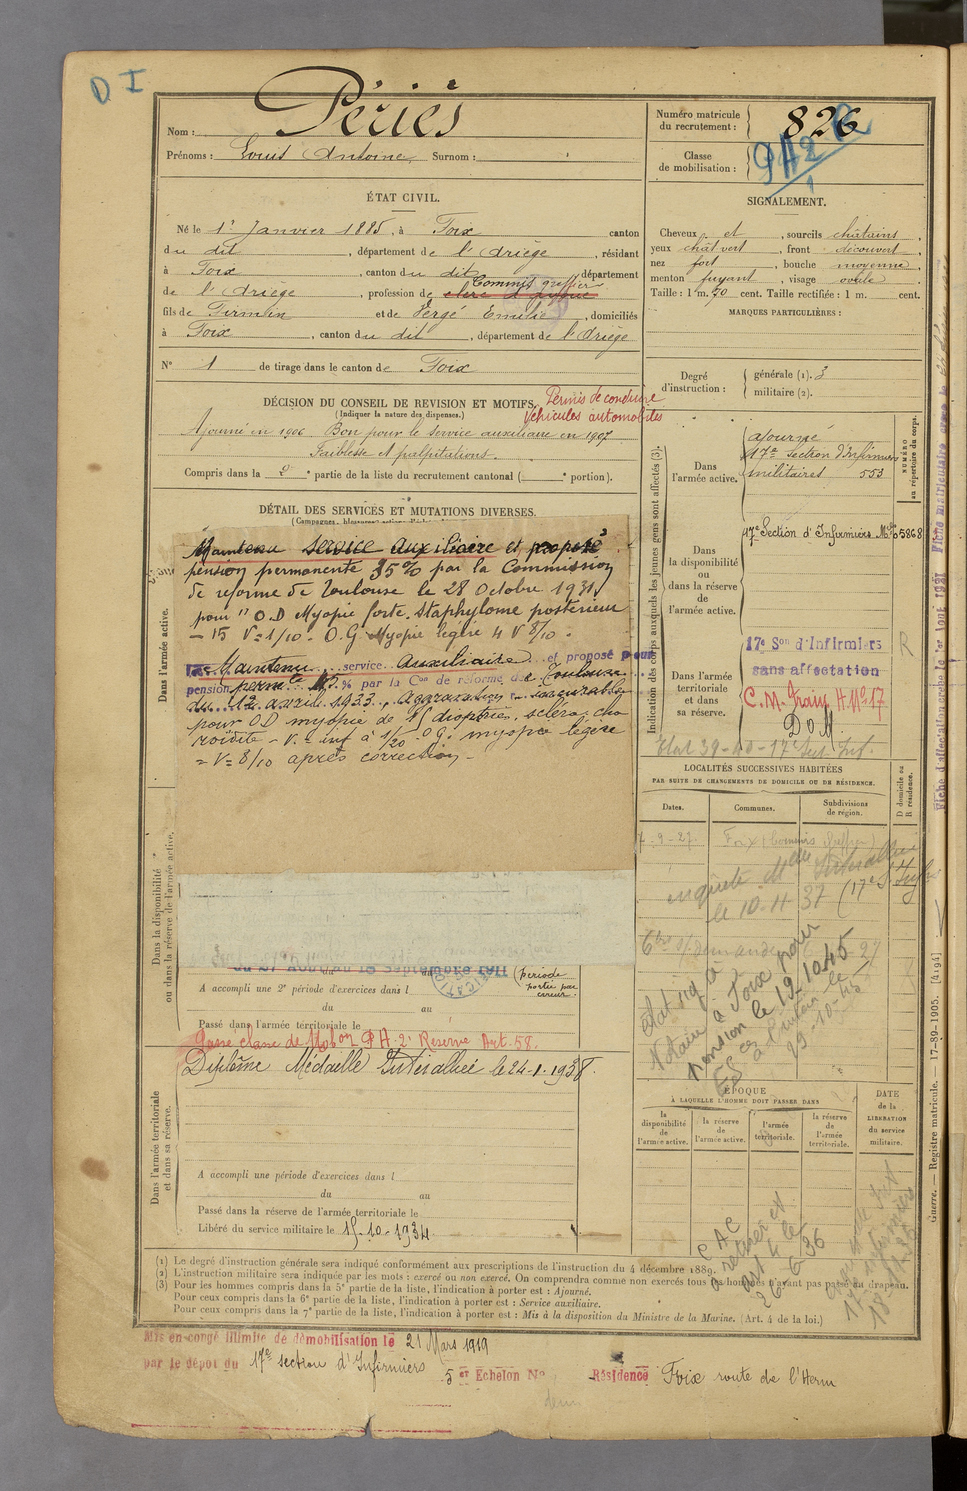 D I
Nom : Périés
Prénoms : Louis Antoine Surnom :
Numéro matricule du recrutement : 826
Classe de mobilisation : PA2
ÉTAT CIVIL.
Né le 1er Janvier 1885, à Foix canton
du dit, département de l'Ariège, résidant
à Foix, canton du dit département
Commis greffier
de l'Ariège, profession de
fils de Firmin et de Vergé Emilie, domiciliés
à Foix, canton du dit, département de l'Ariège
N° 1 de tirage dans le canton de Foix
SIGNALEMENT.
Cheveux et, sourcils châtains,
yeux chât vert, front découvert,
nez fort, bouche moyenne,
menton fuyant, visage ovale.
Taille : 1 m. 70 cent. Taille rectifiée : 1 m. cent.
MARQUES PARTICULIÈRES :
Degré d'instruction : générale (1). 3
militaire (2).
DÉCISION DU CONSEIL DE REVISION ET MOTIFS.
(Indiquer la nature des dispenses.)
Permis de conduire
véhicules automobiles
Ajourné en 1906 Bon pour le service auxiliaire en 1907
Faiblesse et palpitations.
Compris dans la 2e partie de la liste du recrutement cantonal ( e portion).
DÉTAIL DES SERVICES ET MUTATIONS DIVERSES.
Maintenu service auxiliaire et proposé
pension permanente 35% par la Commission
de réforme de Toulouse le 28 Octobre 1931
pour " O.D Myopie forte. Staphylome postérieur
- 15 V = 1/10 - O.G Myopie légère 4 V 8/10 .
Maintenu service auxiliaire et proposé pour
pension perm te % par la Con de réforme de Toulouse
du 12 avril 1933. Aggravation incurable
pour OD myopie de 15 dioptries, scléro cho
roïdite - V = inf à 1/20 OG. myopie légère
= V = 8/10 après correction -
Dans l'armée active.
Dans la disponibilité
ou dans la réserve de l'armée active.
(période
A accompli une 2e période d'exercices dans l
du au
Passé dans l'armée territoriale le
Passé classe de Mobon PA 2 Réserve Art. 58.
Diplôme Médaille Interalliée le 24-1-1938.
Dans l'armée territoriale
et dans sa réserve.
A accompli une période d'exercices dans l
du au
Passé dans la réserve de l'armée territoriale le
Libéré du service militaire le 15-10-1934
Indication des corps auxquels les jeunes gens sont affectés (3).
NUMÉRO
au répertoire du corps.
Dans l'armée active.
ajourné
17e Section d'Infirmiers
militaires 553
Dans la disponibilité ou dans la réserve de l'armée active.
17e Section d'Infirmiers Mres 5868
Dans l'armée territoriale et dans sa réserve.
17e Son d'Infirmiers
R
sans affectation
C.M. Train H N° 17
D o M
LOCALITÉS SUCCESSIVES HABITÉES
PAR SUITE DE CHANGEMENTS DE DOMICILE OU DE RÉSIDENCE.
D domicile ou R résidence.
Dates. Communes. Subdivisions de région.
7-9-27. Foix
enquête Mlle Interalliée
le 10-11 37
Notaire à Foix pour
pension le 19-10-45
29-10-45
ÉPOQUE
À LAQUELLE L'HOMME DOIT PASSER DANS
DATE de la LIBÉRATION du service militaire.
la disponibilité de l'armée active.
la réserve de l'armée active.
l'armée territoriale.
la réserve de l'armée territoriale.
C A C
26-6 36
(1) Le degré d'instruction générale sera indiqué conformément aux prescriptions de l'instruction du 4 décembre 1889.
(2) L'instruction militaire sera indiquée par les mots : exercé ou non exercé. On comprendra comme non exercés tous les hommes n'ayant pas passé au drapeau.
(3) Pour les hommes compris dans la 5e partie de la liste, l'indication à porter est : Ajourné.
Pour ceux compris dans la 6e partie de la liste, l'indication à porter est : Service auxiliaire.
Pour ceux compris dans la 7e partie de la liste, l'indication à porter est : Mis à la disposition du Ministre de la Marine. (Art. 4 de la loi.)
Mis en congé illimité de démobilisation le 21 Mars 1919
par le dépôt du 17e section d'Infirmiers
5 er Echelon No Résidence Foix route de l'Herm
Guerre. — Registre matricule. — 17-89-1905. [4194]